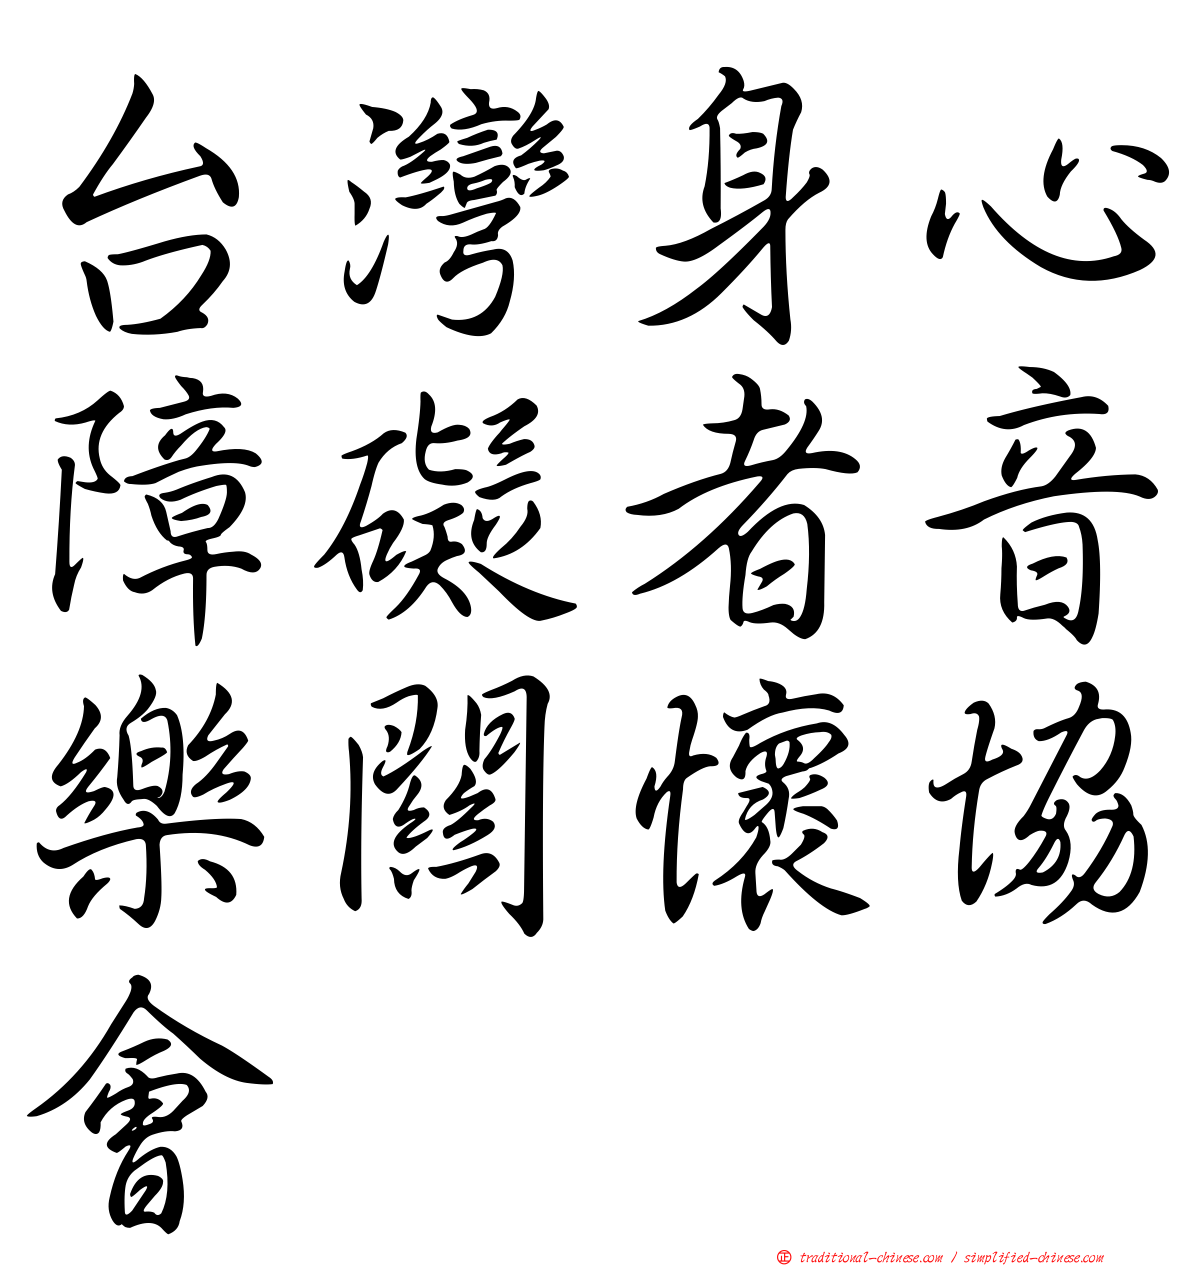 台灣身心
障礙者音
樂關懷協
會
正 traditional-chinese.com / simplified-chinese.com